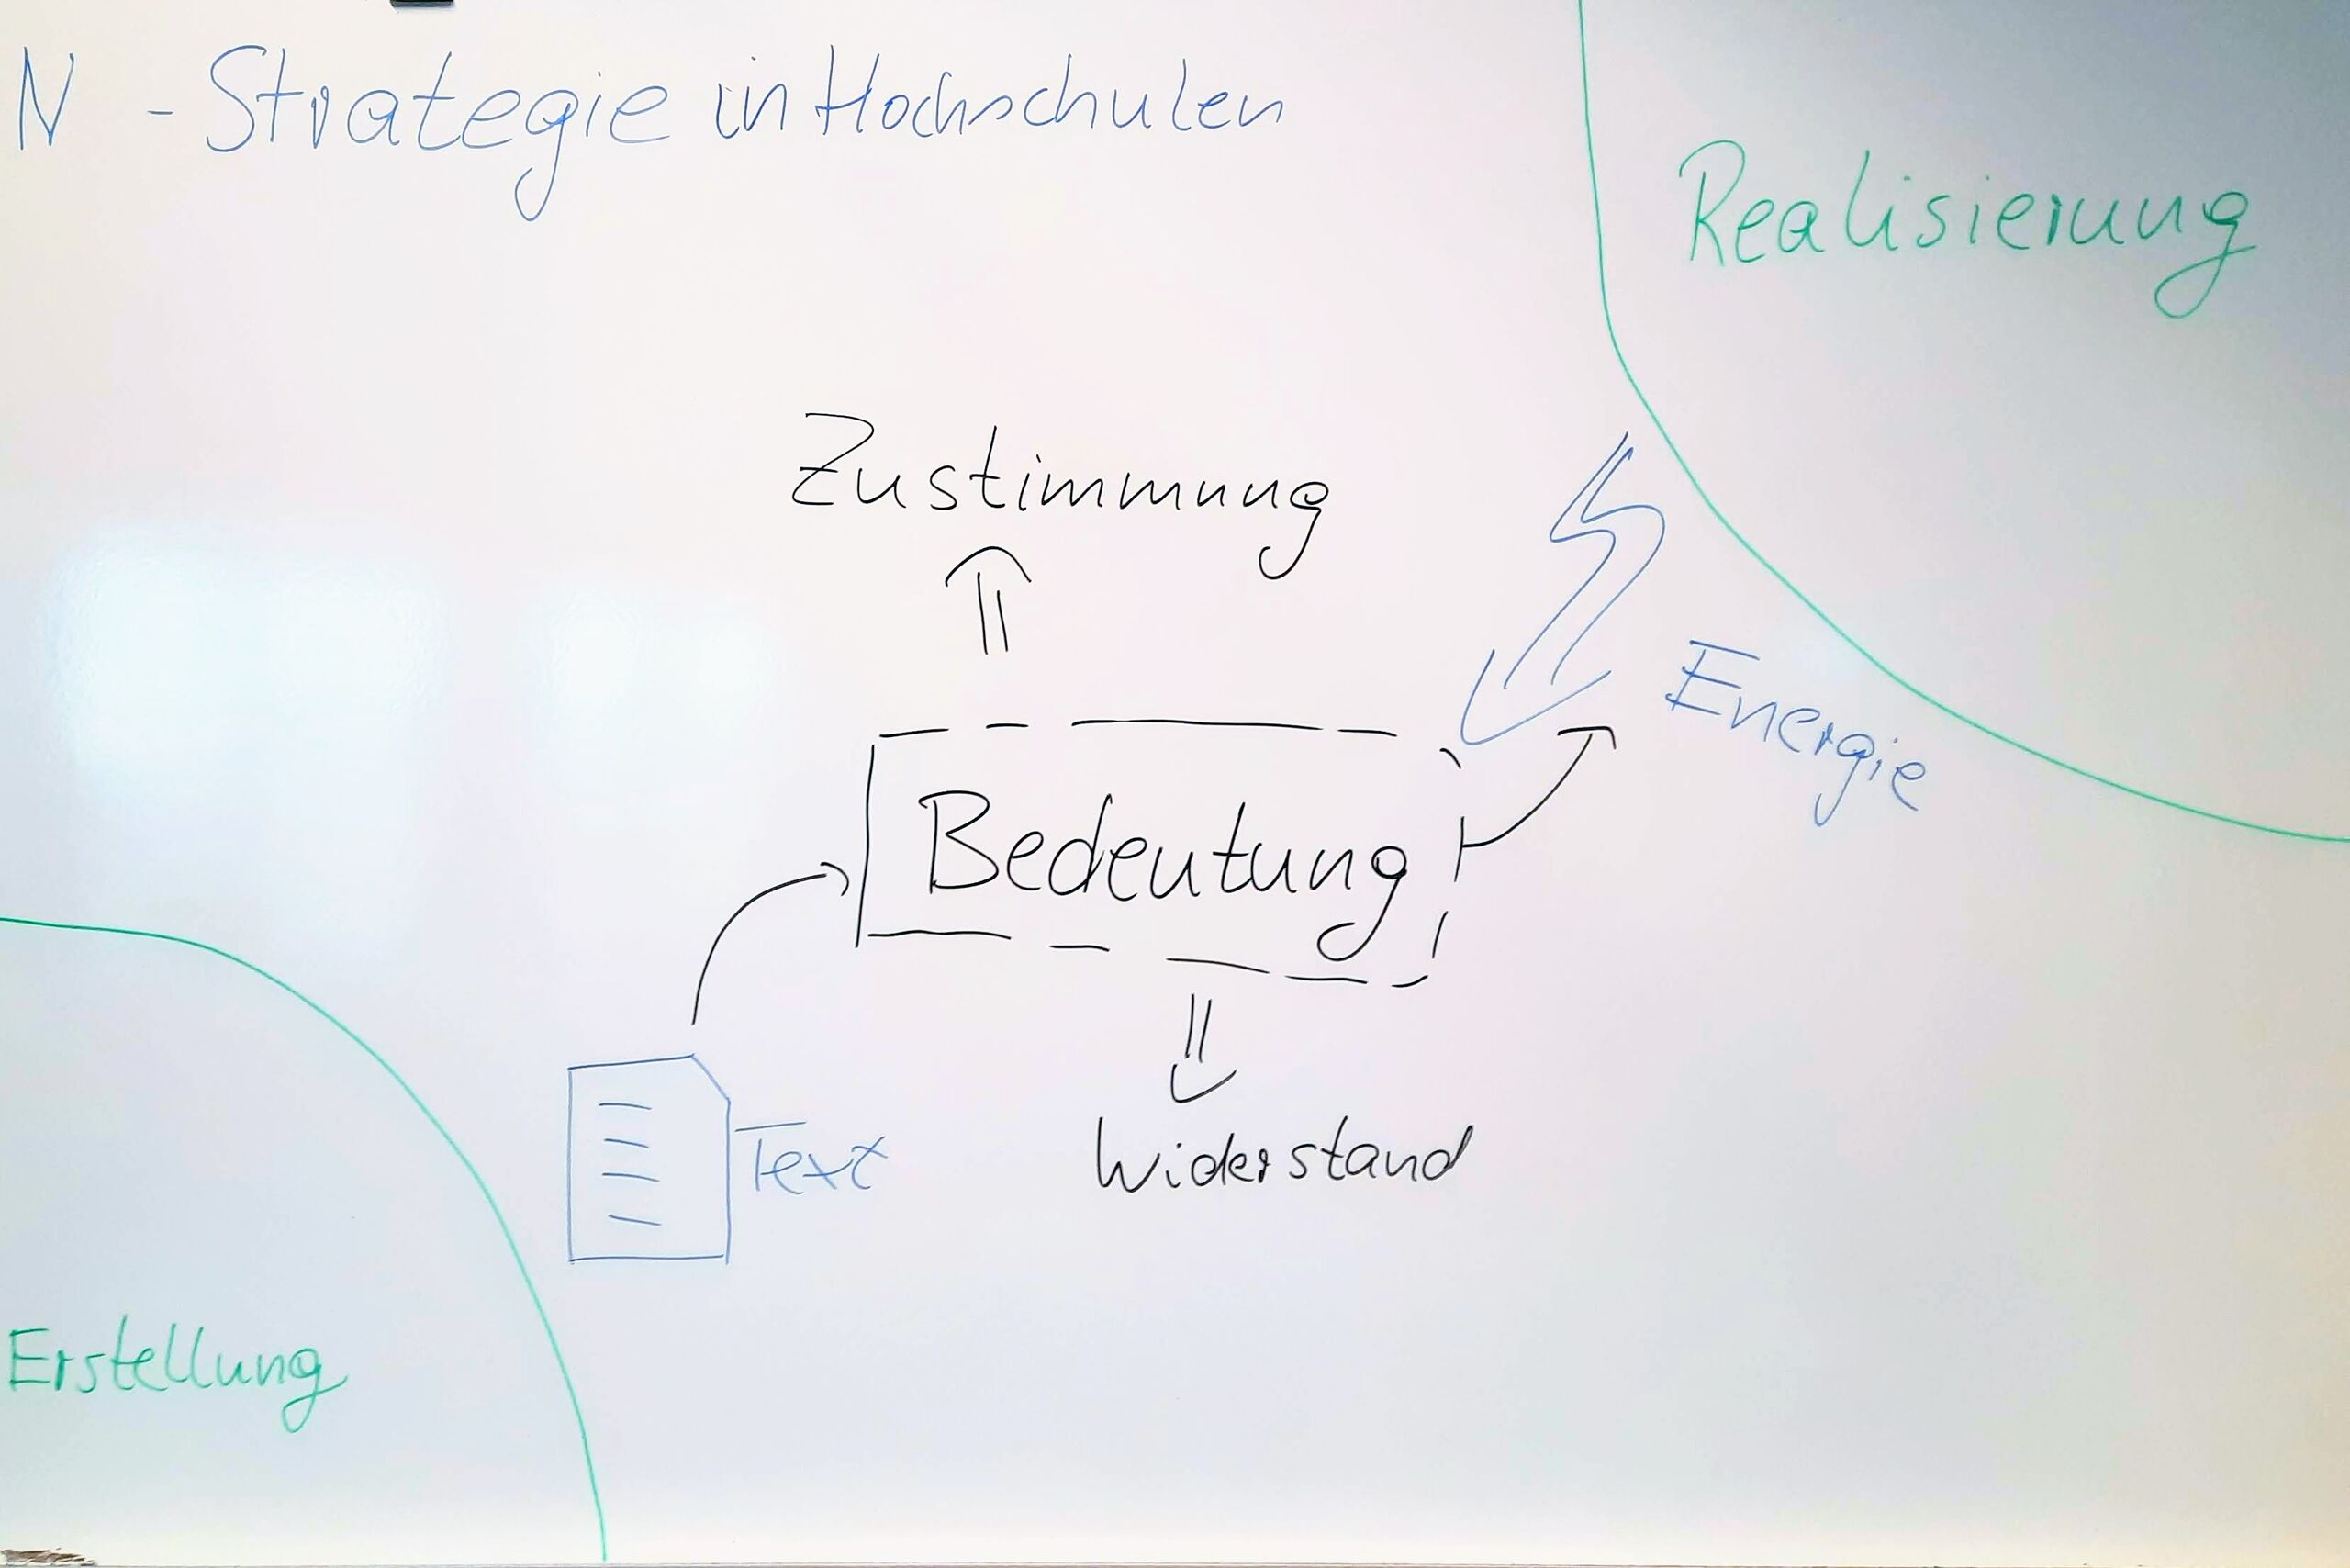 N - Strategie in Hochschulen
Realisierung
Zustimmung
Energie
Bedeutung
Text
Widerstand
Erstellung